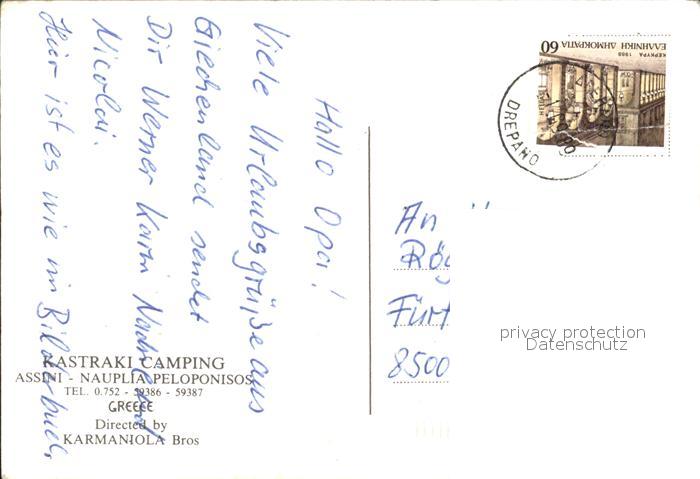 Hallo Opa!
Viele Urlaubsgrüße aus
Griechenland sendet
Dir Werner Karin Nadine und
Nicolai.
Hier ist es wie im Bilderbuch.
KASTRAKI CAMPING
ASSINI - NAUPLIA PELOPONISOS
TEL. 0.752 - 59386 - 59387
GREECE
Directed by
KARMANIOLA Bros
60
ΕΛΛΗΝΙΚΗ ΔΗΜΟΚΡΑΤΙΑ
ΚΕΡΚΥΡΑ 1988
DREPANO
An
Rög
Fürt
8500
privacy protection
Datenschutz